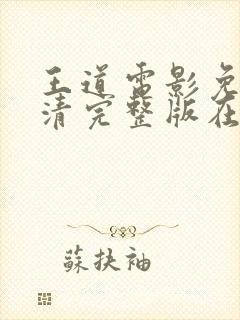 王道电影免
清完整版在
蘇扶袖